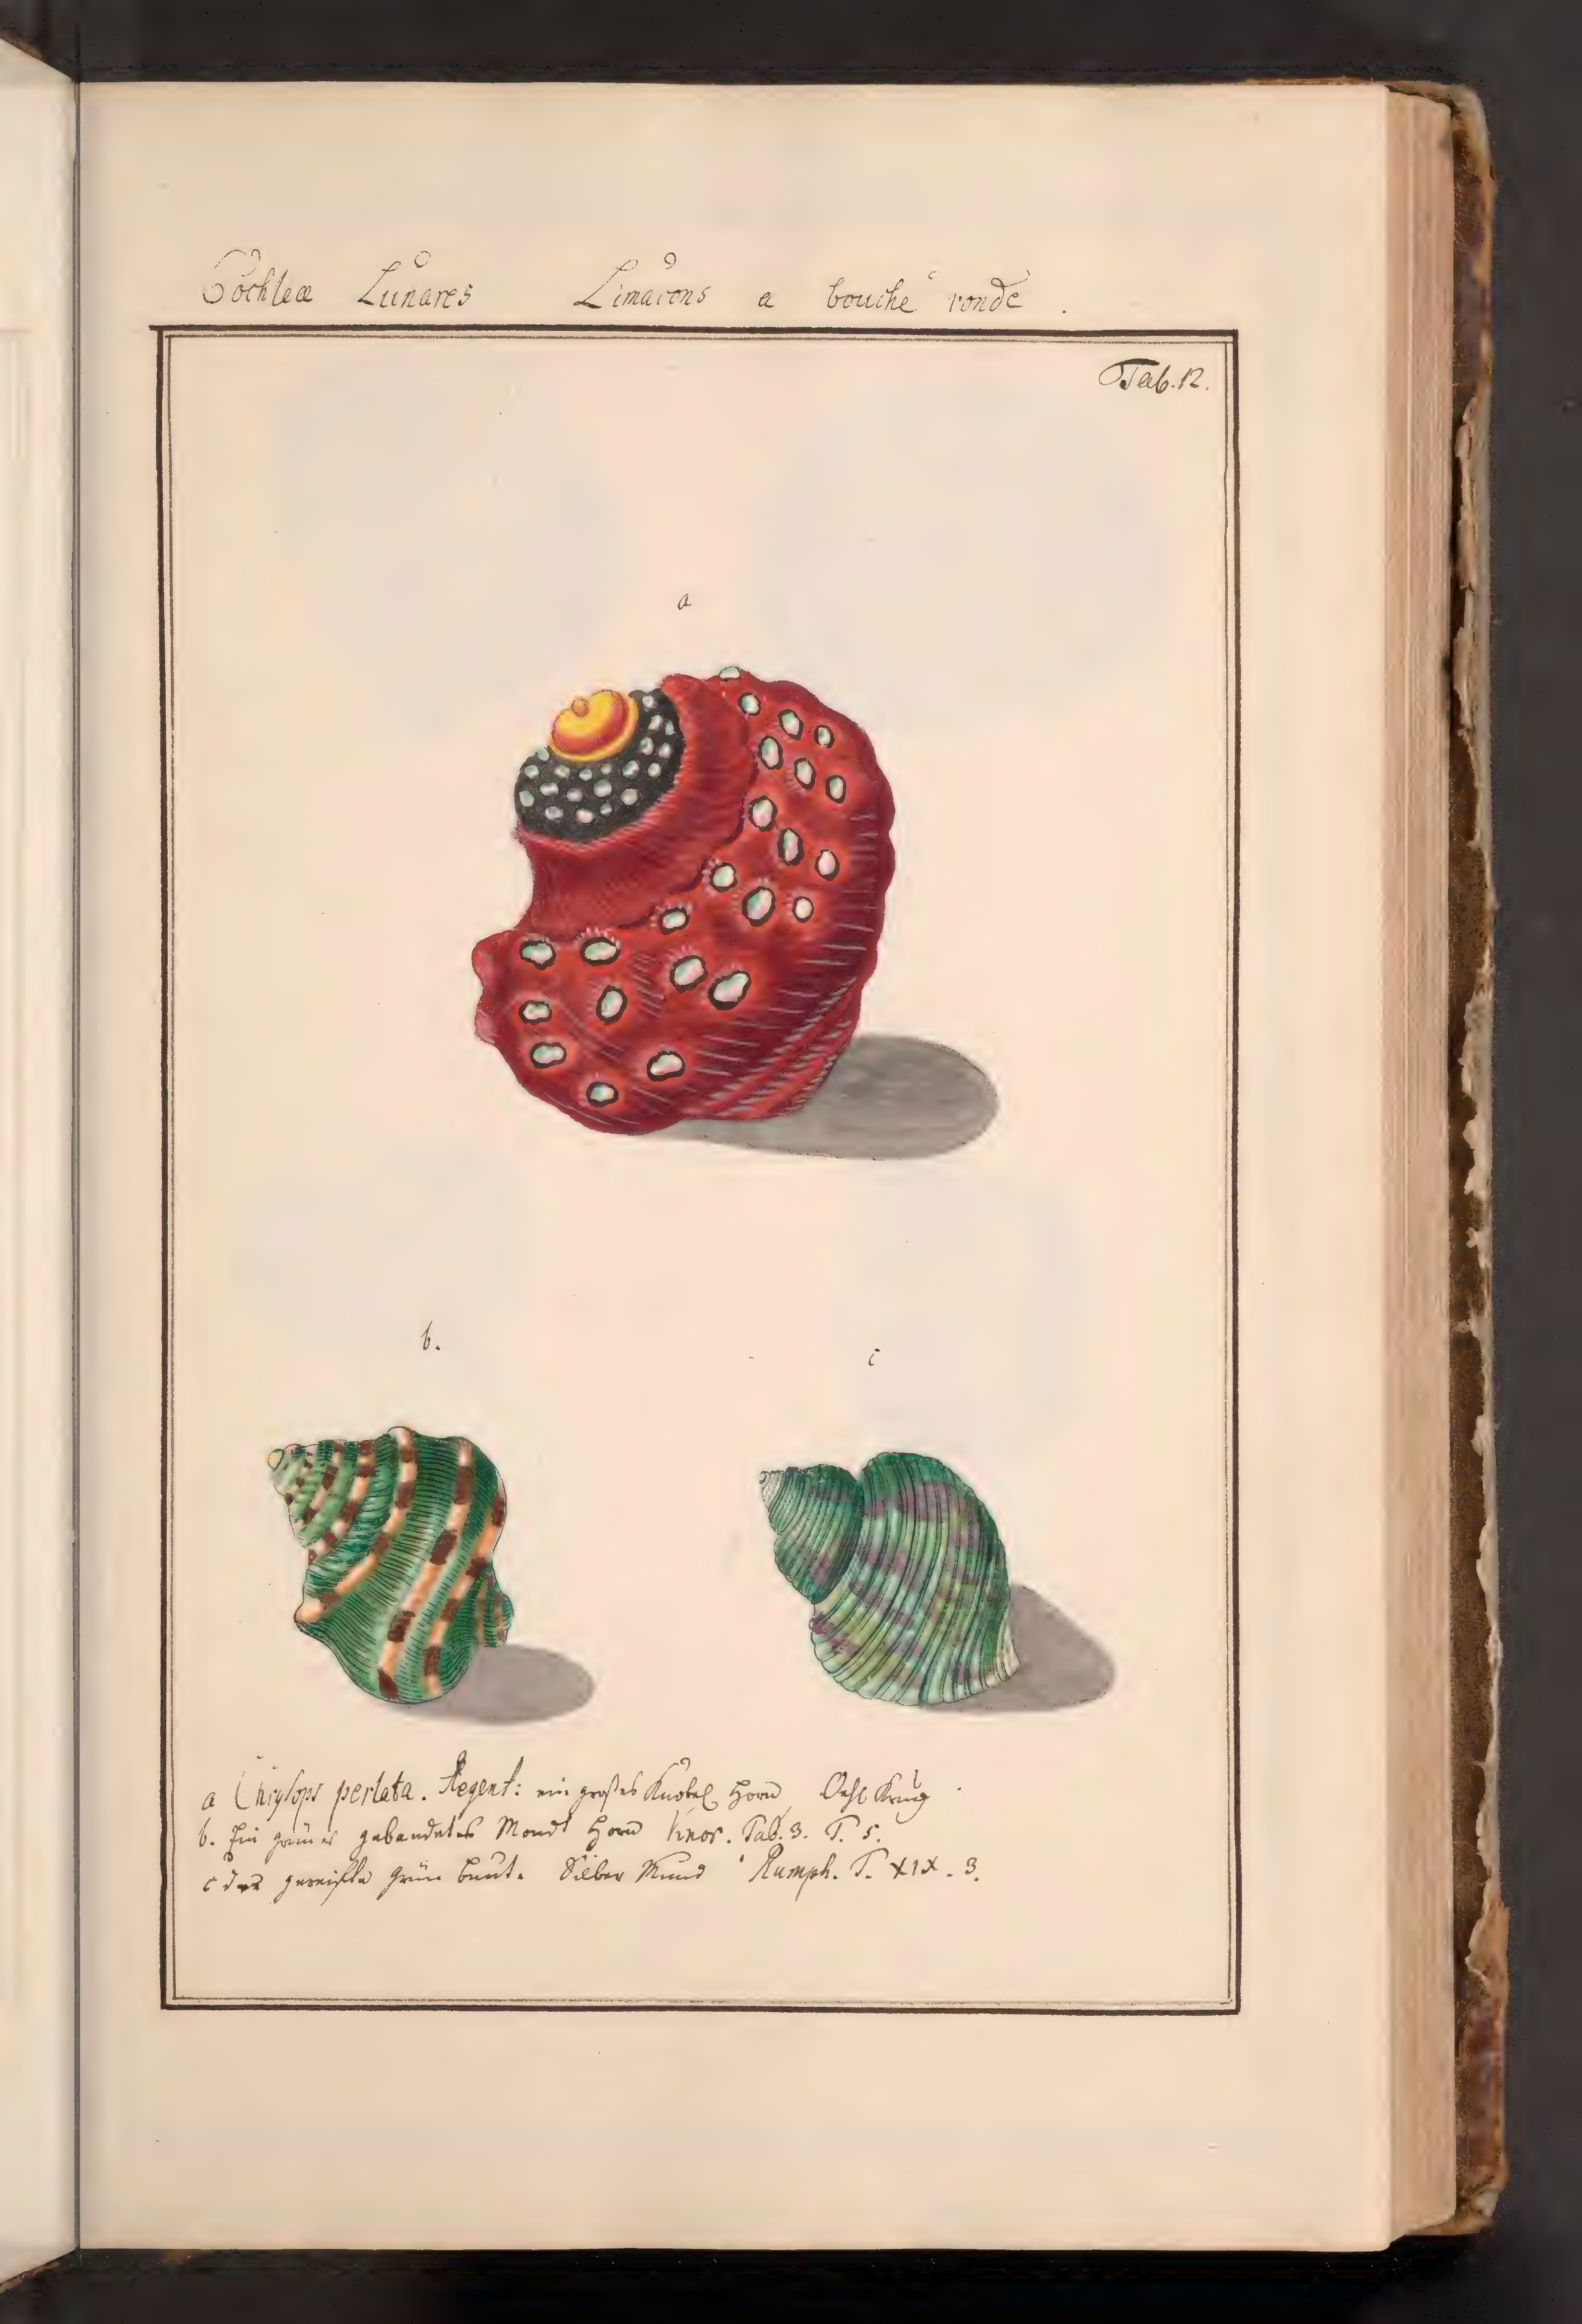 Cochleæ Lunares Limacons a bouche ronde .
Tab. 12.
a
b.
c
a Chrysops perlata. Regent: ein großes Knobel Horn Oehl Krug
b. Ein grünes gebandetes Mondt Horn Knor. Tab. 3. T. 5.
c das gereiffte grün bunt. Silber Mund Rumph. T. XIX. 3.